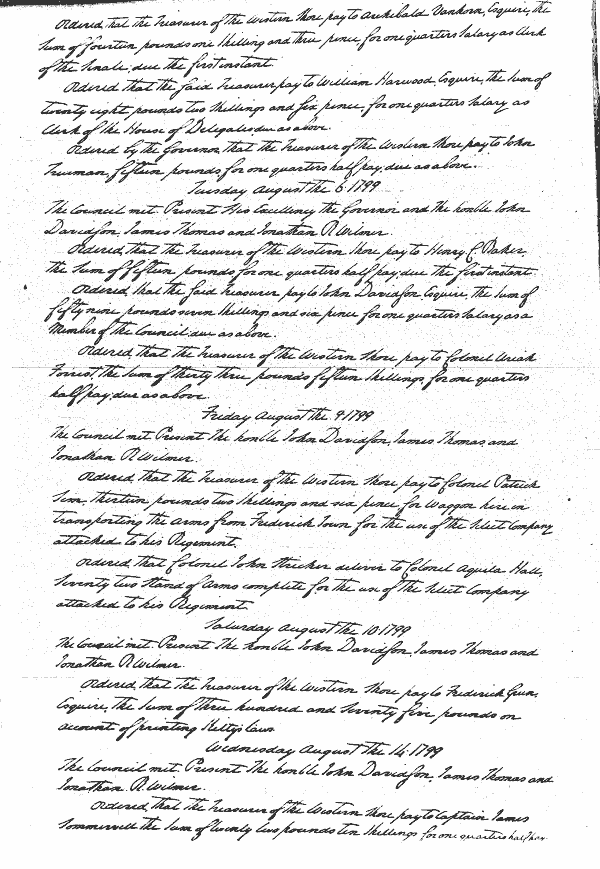 Ordered, that the Treasurer of the Western Shore pay to Archibald Vanhorn, Esquire, the
Sum of fourteen pounds one Shilling and three pence, for one quarters Salary as Clerk
of the Senate, due the first instant.
Ordered that the said Treasurer pay to William Harwood Esquire, the Sum of
twenty eight, pounds two Shillings and six pence, for one quarters Salary as
Clerk of the House of Delegates due as above.
Ordered by the Governor, that the Treasurer of the Western Shore pay to John
Trueman, fifteen pounds for one quarters half pay, due as above.
Tuesday August the 6. 1799
The Council met. Present His Excellency the Governor and the honble John
Davidson, James Thomas and Jonathan R. Wilmer.
Ordered, that the Treasurer of the Western Shore pay to Henry C. Baker,
the Sum of fifteen pounds for one quarters half pay, due the first instant.
Ordered, that the said Treasurer pay to John Davidson Esquire, the Sum of
fifty nine pounds seven Shillings and six pence for one quarters Salary as a
Member of the Council due as above.
Ordered, that the Treasurer of the Western Shore pay to Colonel Uriah
Forrest, the Sum of thirty three pounds fifteen Shillings, for one quarters
half pay, due as above.
Friday August the 9. 1799
The Council met Present The honble John Davidson, James Thomas, and
Jonathan R. Wilmer.
Ordered, that the Treasurer of the Western Shore pay to Colonel Patrick
Sim, thirteen pounds two Shillings and six pence for Waggon hire in
transporting the Arms from Frederick Town for the use of the Select Company
attached to his Regiment.
Ordered, that Colonel John Stricker deliver to Colonel Aquila Hall,
Seventy two Stand of Arms complete for the use of the Select Company
attached to his Regiment
Saturday August the 10. 1799
The Council met. Present The honble John Davidson, James Thomas and
Jonathan R. Wilmer.
Ordered, that the Treasurer of the Western Shore pay to Frederick Green,
Esquire, the Sum of three hundred and Seventy five pounds on
account of printing Kelty's laws
Wednesday August the 14. 1799
The Council met. Present The honble John Davidson, James Thomas and
Jonathan R. Wilmer.
Ordered, that the Treasurer of the Western Shore pay to Captain James
Sommervell the Sum of twenty two pounds ten Shillings for one quarters half pay